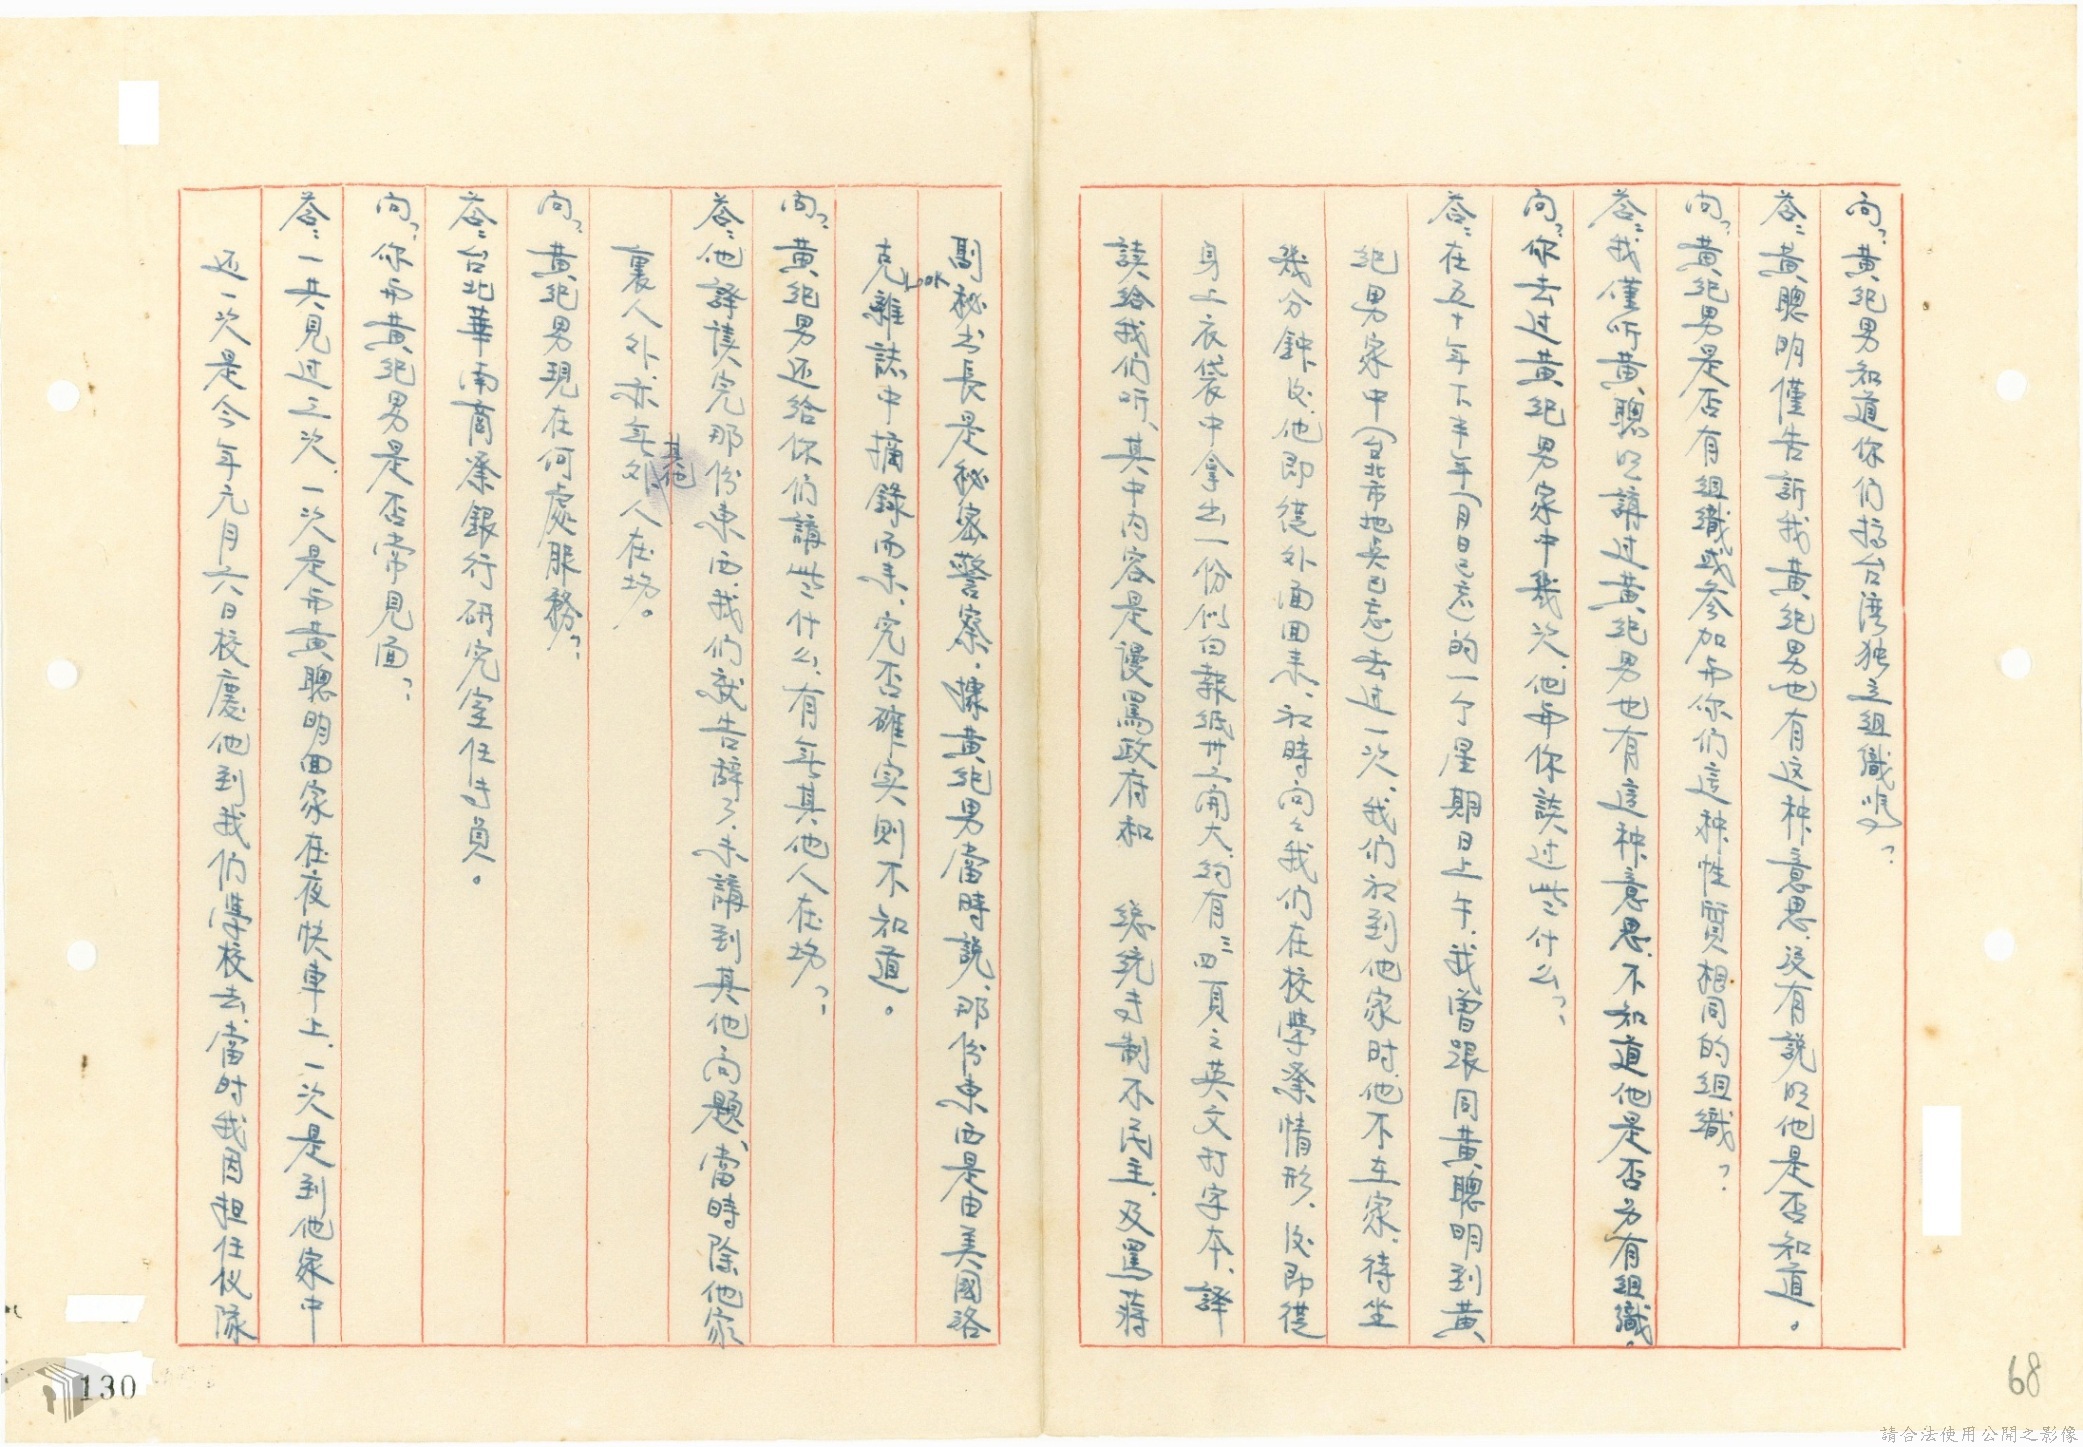 问：黃紀男知道你们搞台湾独立組織呢？
答：黃聰明僅告訴我黃紀男也有这种意思，没有説明他是否知道。
问：黃紀男是否有組織或参加与你们這种性質相同的組織？
答：我僅听黃聰明講过黃紀男也有這种意思，不知道他是否另有組織。
问：你去过黃紀男家中幾次，他与你談过些什么？
答：在五十年下半年（月日已忘）的一个星期日上午，我曾跟同黃聰明到黃
紀男家中（台北市地点已忘）去过一次，我们初到他家时，他不在家，待坐
幾分鐘後，他即從外面回来，初時问々我们在校學業情形，後即從
身上衣袋中拿出一份似白報紙卅二開大，約有三四頁之英文打字本，譯
読给我们听，其中内容是謾罵政府和　總統专制不民主，及罵蔣
副秘书長是秘密警察，據黃紀男當時説，那份東西是由美國洛
克LOOK雜誌中摘錄而来，究否確实則不知道。
问：黃紀男还给你们講些什么，有無其他人在场？
答：他譯读完那份東西，我们就告辞了，未講到其他问題，當時除他家
裏人外，亦無外其他人在场。
问：黃紀男現在何處服務？
答：台北華南商業銀行研究室任专員。
问：你与黃紀男是否常見面？
答：一共見过三次，一次是与黃聰明回家在夜快車上，一次是到他家中
还一次是今年元月六日校慶他到我们學校去，當时我因担任仪隊
130
68
請合法使用公開之影像